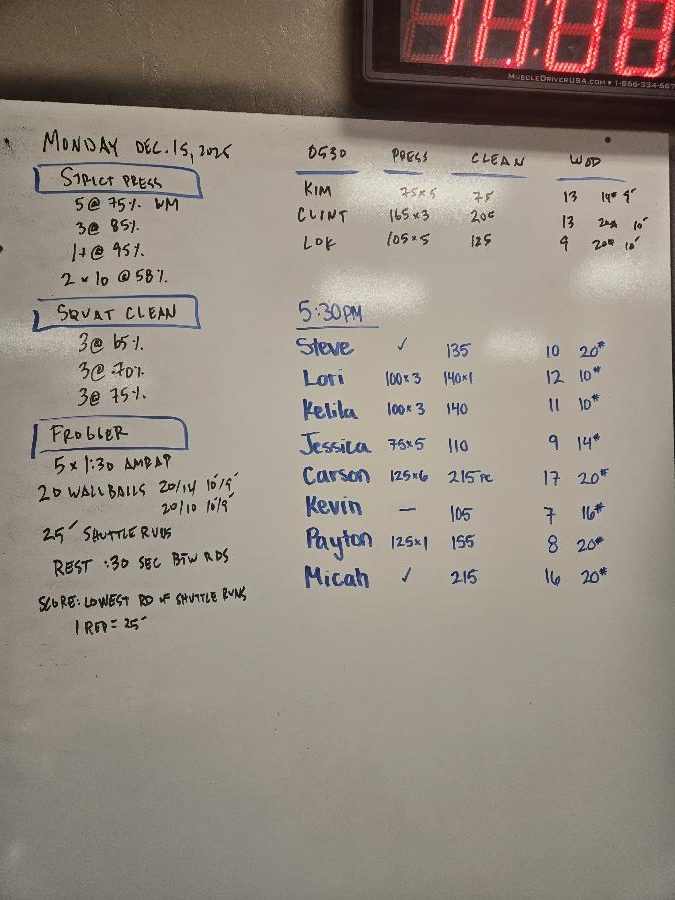 MUSCLEDRIVERUSA.COM • 1-866-334-667
MONDAY DEC. 15, 2025
STRICT PRESS
5 @ 75% WM
3 @ 85%
1+ @ 95%
2 x 10 @ 58%
SQUAT CLEAN
3 @ 65%
3 @ 70%
3 @ 75%
FROGGER
5 x 1:30 AMRAP
20 WALLBALLS 20/14 10'/9'
20/10 10'/9'
25' SHUTTLE RUNS
REST :30 SEC BTW RDS
SCORE: LOWEST RD OF SHUTTLE RUNS
1 REP = 25'
0530 PRESS CLEAN WOD
KIM 75x5 75 13 14# 9'
CLINT 165x3 205 13 20# 10'
LOK 105x5 125 9 20# 10'
5:30PM
Steve ✓ 135 10 20#
Lori 100x3 140x1 12 10#
Kelila 100x3 140 11 10#
Jessica 75x5 110 9 14#
Carson 125x6 215 PC 17 20#
Kevin — 105 7 16#
Payton 125x1 155 8 20#
Micah ✓ 215 16 20#